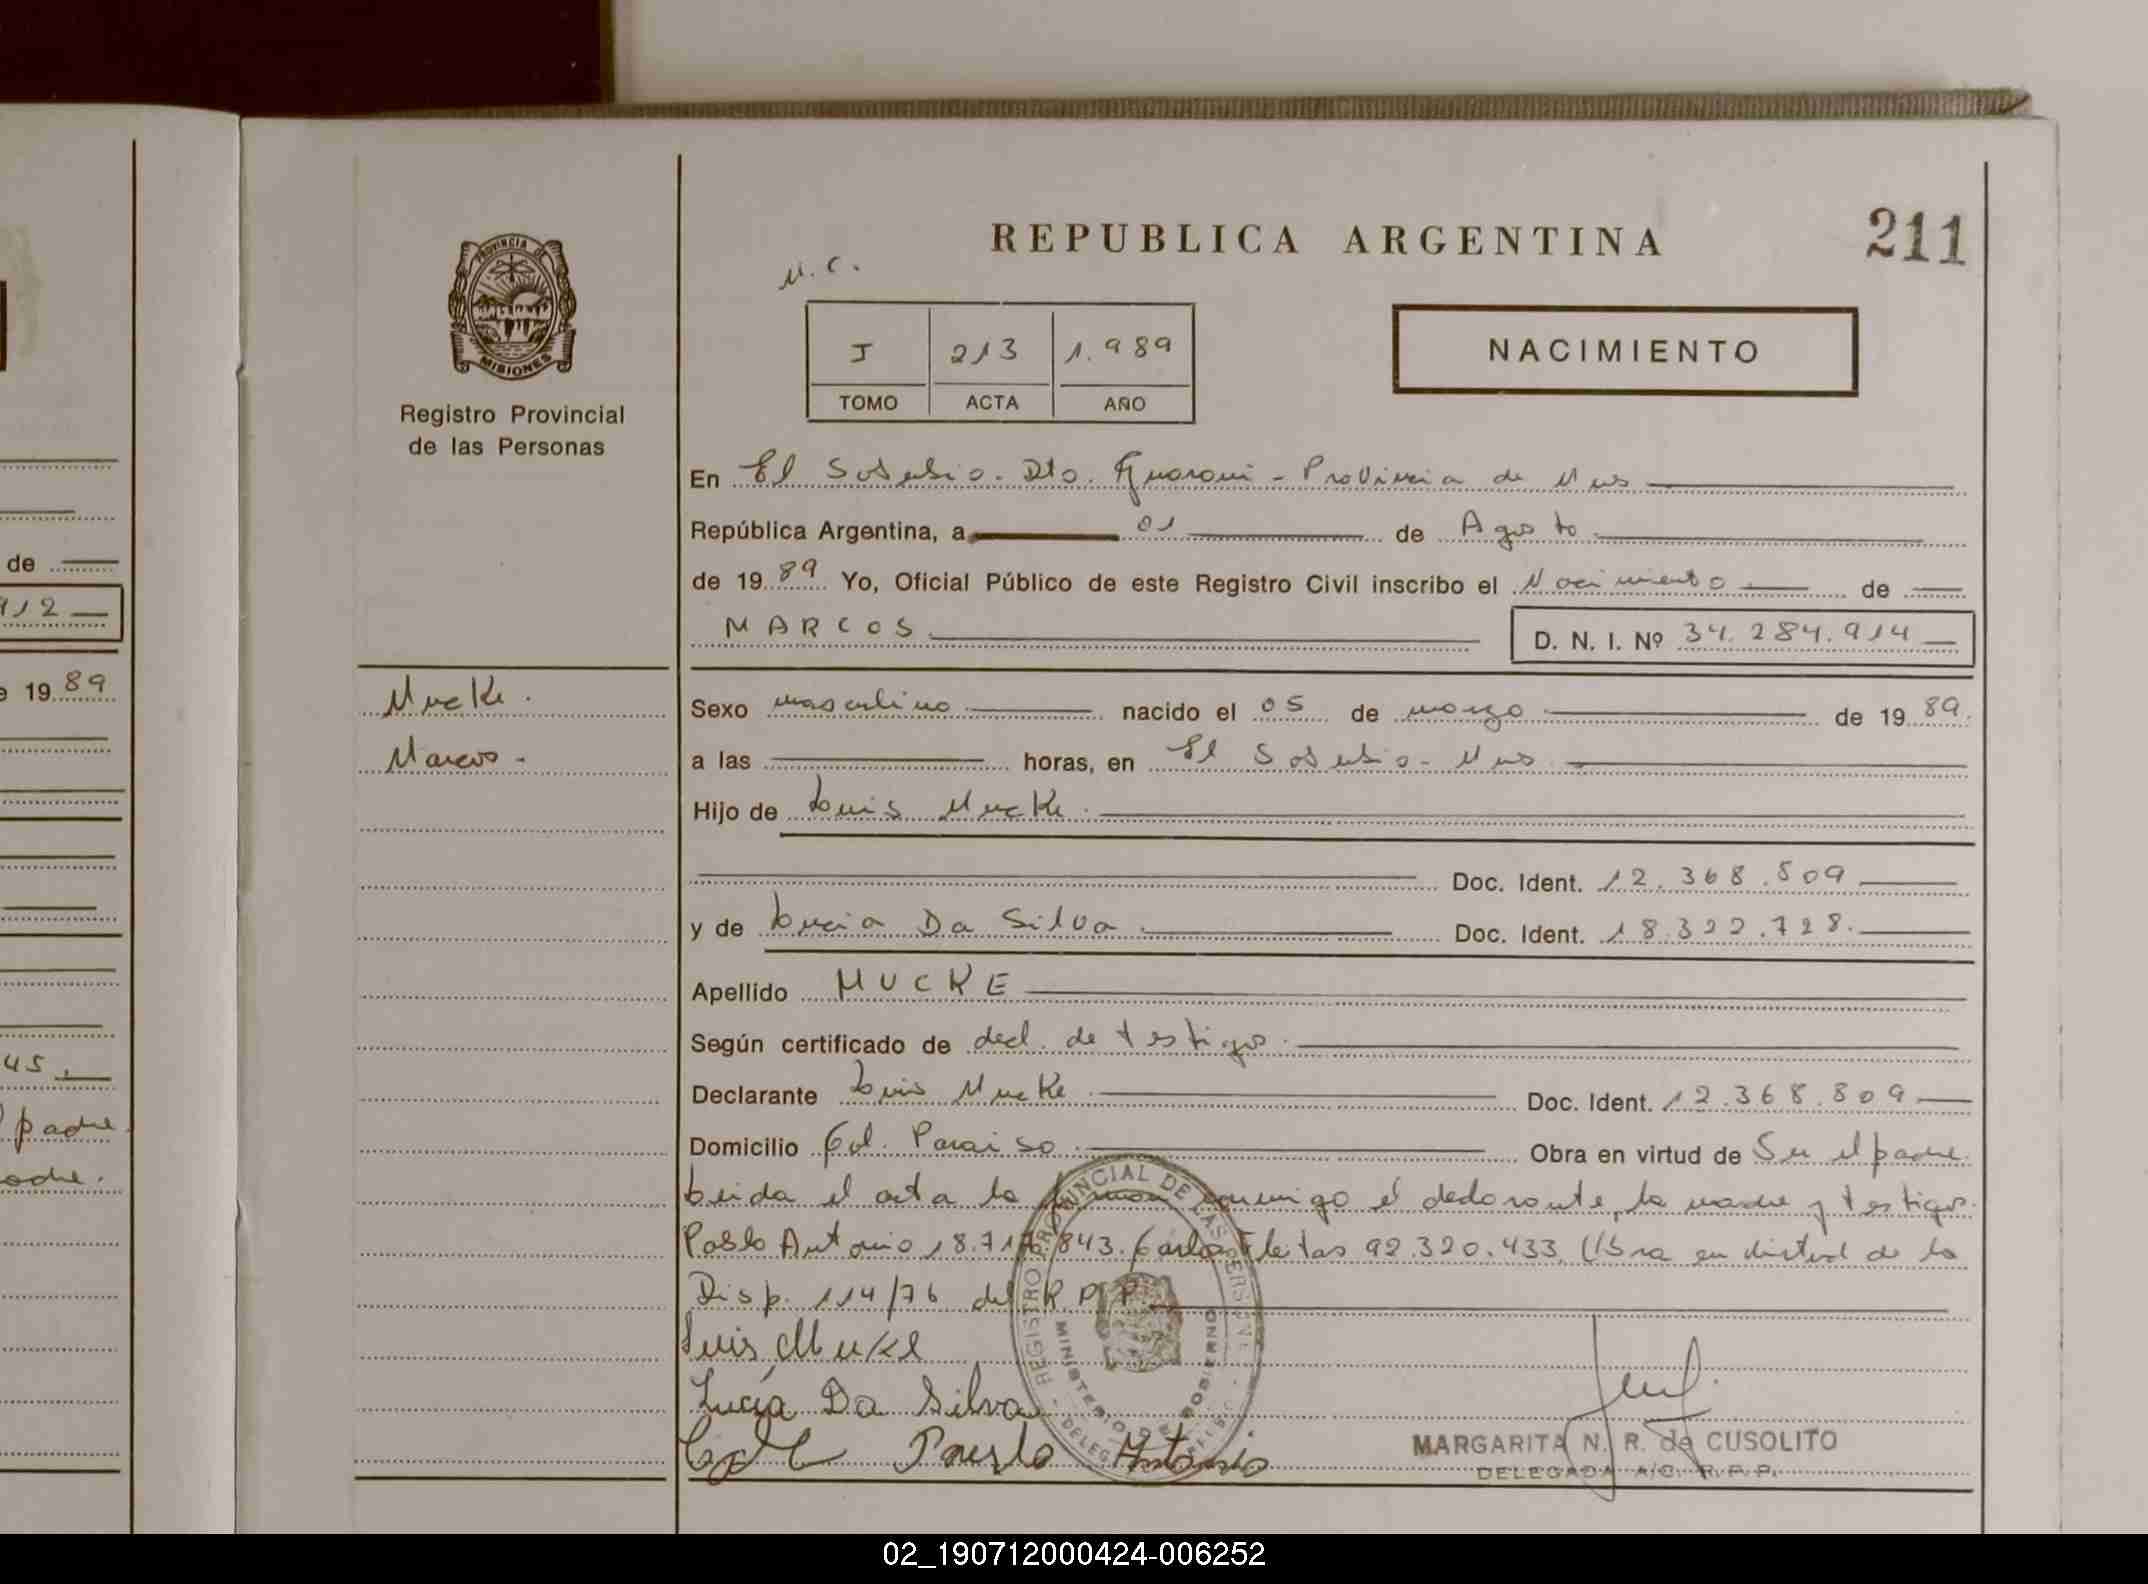 REPUBLICA ARGENTINA
211
N.C.
PROVINCIA DE
MISIONES
Registro Provincial
de las Personas
I 213 1.989
TOMO ACTA AÑO
NACIMIENTO
En El Soberbio. Dto. Guarani - Provincia de Mns
República Argentina, a 01 de Agosto
de 1989 Yo, Oficial Público de este Registro Civil inscribo el Nacimiento de
MARCOS D. N. I. Nº 34.284.914
Mucke.
Marcos -
Sexo masculino nacido el 05 de marzo de 1989
a las horas, en El Soberbio - Mns
Hijo de Luis Mucke.
Doc. Ident. 12.368.809
y de Lucia Da Silva Doc. Ident. 18.322.728.
Apellido MUCKE
Según certificado de decl. de testigos.
Declarante Luis Mucke Doc. Ident. 12.368.809
Domicilio Col. Paraiso. Obra en virtud de Ser el padre.
Leida el acta la firman conmigo el declarante, la madre y testigos.
Pablo Antonio 18.717.843. Carlos Fleitas 92.320.433. Obra en virtud de la
Disp. 114/76 del R.P.P.
Luis Muke
Lucía Da Silva
Paulo Antonio
REGISTRO PROVINCIAL DE LAS PERSONAS
MINISTERIO DE GOBIERNO
MARGARITA N. R. de CUSOLITO
DELEGADA A/C. R. P. P.
de
912
e 1989
45.
padre.
02_190712000424-006252